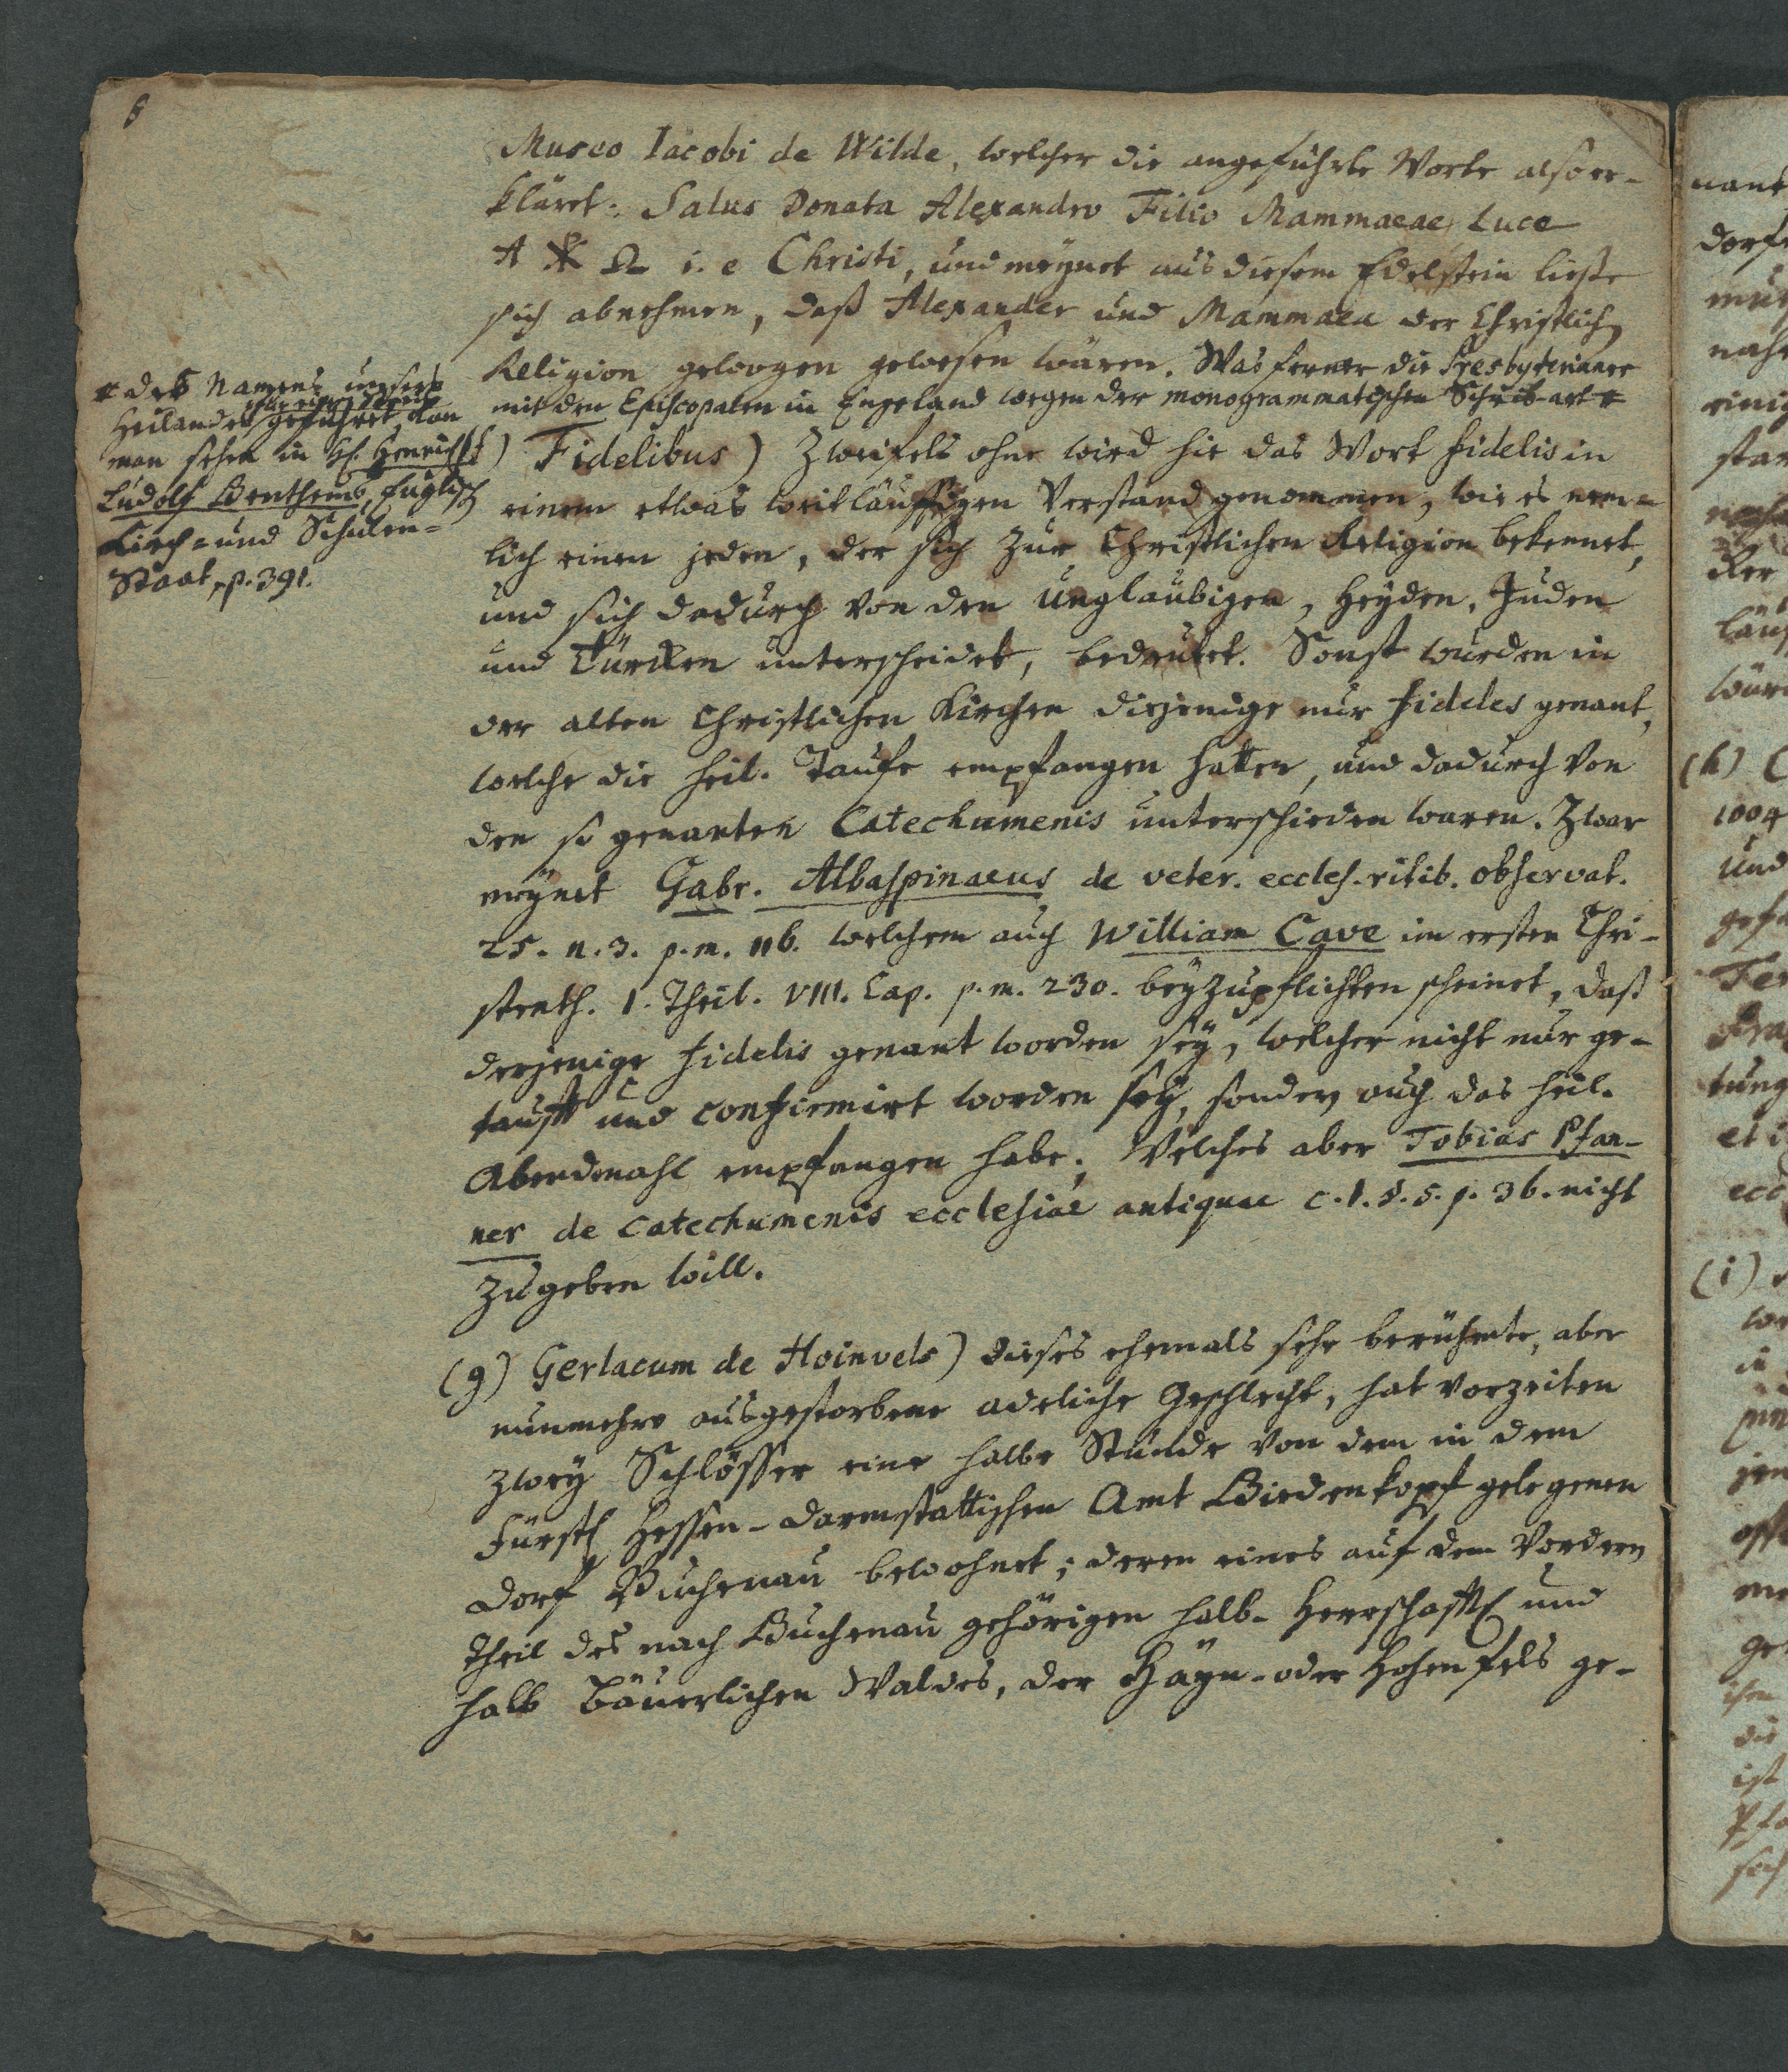 8
Museo Iacobi de Wilde, welcher die angeführte Worte also er-
kläret: Salus Donata Alexandro Filio Mammaeae Luce
A ⳩ Ω i. e Christi, und meynet aus diesem Edelstein lieste
sich abnehmen, daß Alexander und Mammaea der Christlich
Religion gewogen gewesen wären. Was ferner die Presbyterianer
mit den Episcopalen in Engeland wegen der monogrammatischen Schreib-art
des Namens unsers
Heilandes für einen Streit geführet, kan
man sehen in H. Henrich
Ludolf Benthems, Englisch
Kirch- und Schulen-
Staat, p. 391.
f) Fidelibus) Zweifels ohne wird hie das Wort fidelis in
einem etwas weitläuffigen Verstand genommen, wie es nem-
lich einen jeden, der sich zur Christlichen Religion bekennet,
und sich dadurch von den unglaubigen, Heyden, Juden
und Türcken unterscheidet, bedeutet. Sonst wurden in
der alten Christlichen Kirchen diejenige nur fideles genant,
welche die heil. Taufe empfangen hatten, und dadurch von
den so genanten Catechumenis unterschieden waren. Zwar
meynet Gabr. Albaspinaeus de veter. eccles. ritib. observat.
25. n. 3. p. m. 116. welchem auch William Cave im ersten Chri-
stenth. 1. Theil. VIII. Cap. p. m. 230. beyzupflichten scheinet, daß
derjenige fidelis genant worden sey, welcher nicht nur ge-
taufft und confirmirt worden sey, sondern auch das heil.
Abendmahl empfangen habe; Welches aber Tobias Pfan-
ner de catechumenis ecclesiae antiquae c. 1. §. 5. p. 36. nicht
zugeben will.
(g) Gerlacum de Hoinvels) dieses ehemals sehr berühmte, aber
nunmehro ausgestorbene adeliche Geschlecht, hat vorzeiten
zwey Schlösser eine halbe Stunde von dem in dem
Fürstl. Hessen-Darmstattischen Amt Biedenkopf gelegenen
Dorf Buchenau bewohnet; deren eines auf dem Vordern
Theil des nach Buchenau gehörigen halb-Herrschafftl. und
halb Bäuerlichen Waldes, der Hayn- oder Hohenfels ge-
(h)
1004
und
tung
et i
(i)
in
ist